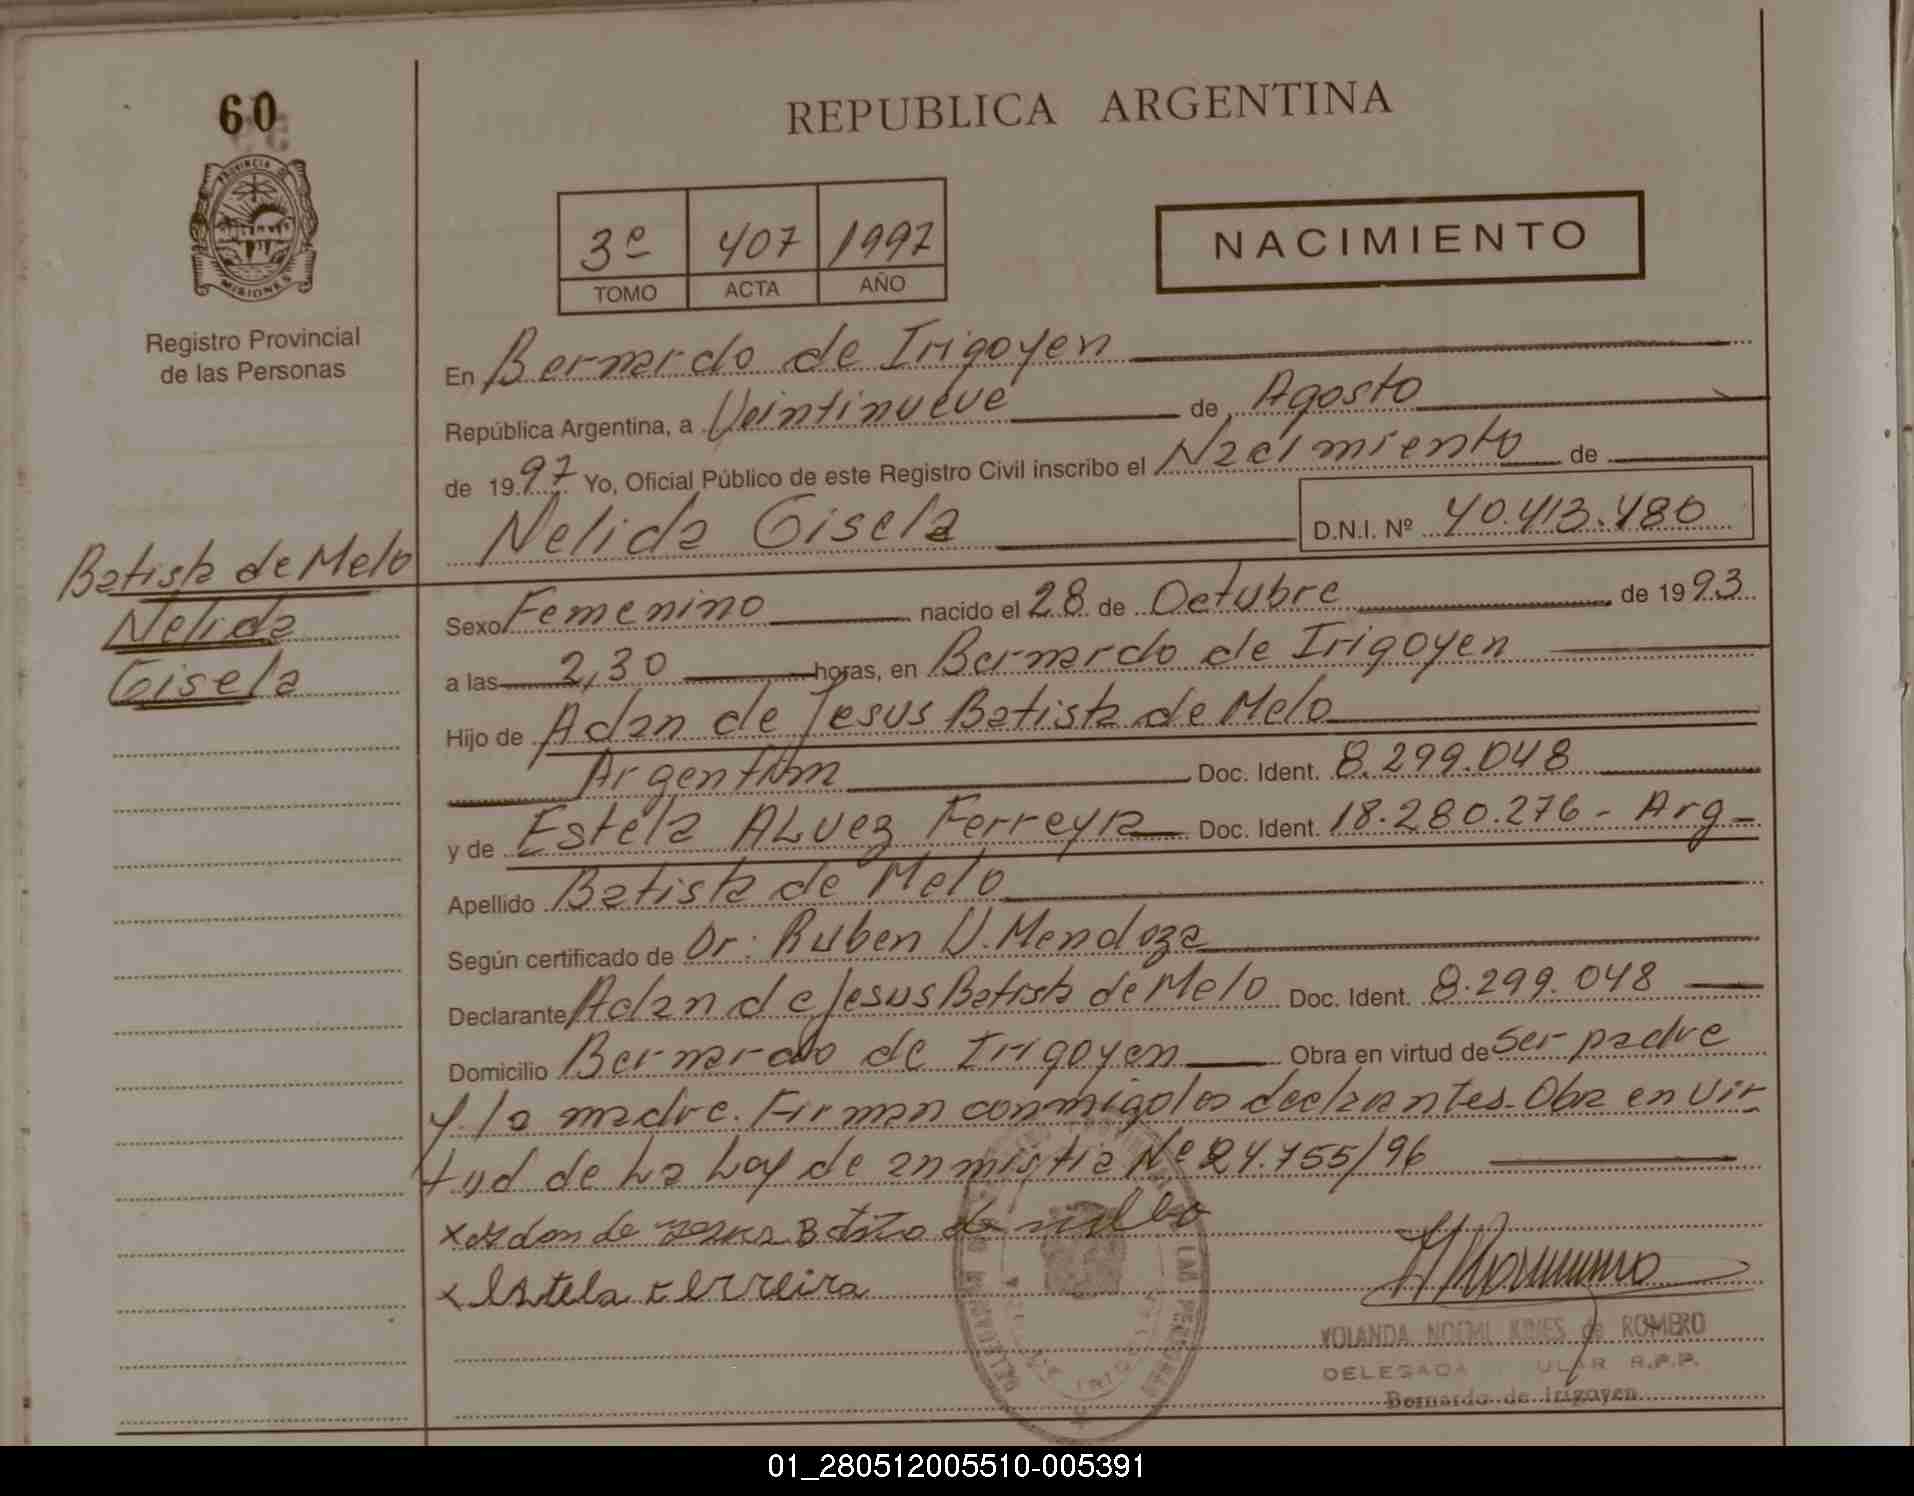 60
PROVINCIA
MISIONES
Registro Provincial
de las Personas
REPUBLICA ARGENTINA
3º 407 1997
TOMO ACTA AÑO
NACIMIENTO
En Bernardo de Irigoyen
República Argentina, a Veintinueve de Agosto
de 1997 Yo, Oficial Público de este Registro Civil inscribo el Nacimiento de
Nelida Gisela D.N.I. Nº 40.413.480
Batista de Melo
Nelida
Gisela
Sexo Femenino nacido el 28 de Octubre de 1993
a las 2,30 horas, en Bernardo de Irigoyen
Hijo de Adan de Jesus Batista de Melo
Argentino Doc. Ident. 8.299.048
y de Estela ALvez Ferreyra Doc. Ident. 18.280.276 - Arg -
Apellido Batista de Melo
Según certificado de Dr: Ruben V. Mendoza
Declarante Adan de Jesus Batista de Melo Doc. Ident. 8.299.048
Domicilio Bernardo de Irigoyen Obra en virtud de ser padre
y la madre. Firman conmigo los declarantes. Oba en vir-
tud de La Ley de anmistia Nº 24.755/96
x adan de
x estela ferreira
YOLANDA NOEMI KINES de ROMERO
DELEGADA R.P.P.
Bernardo de Irigoyen
01_280512005510-005391